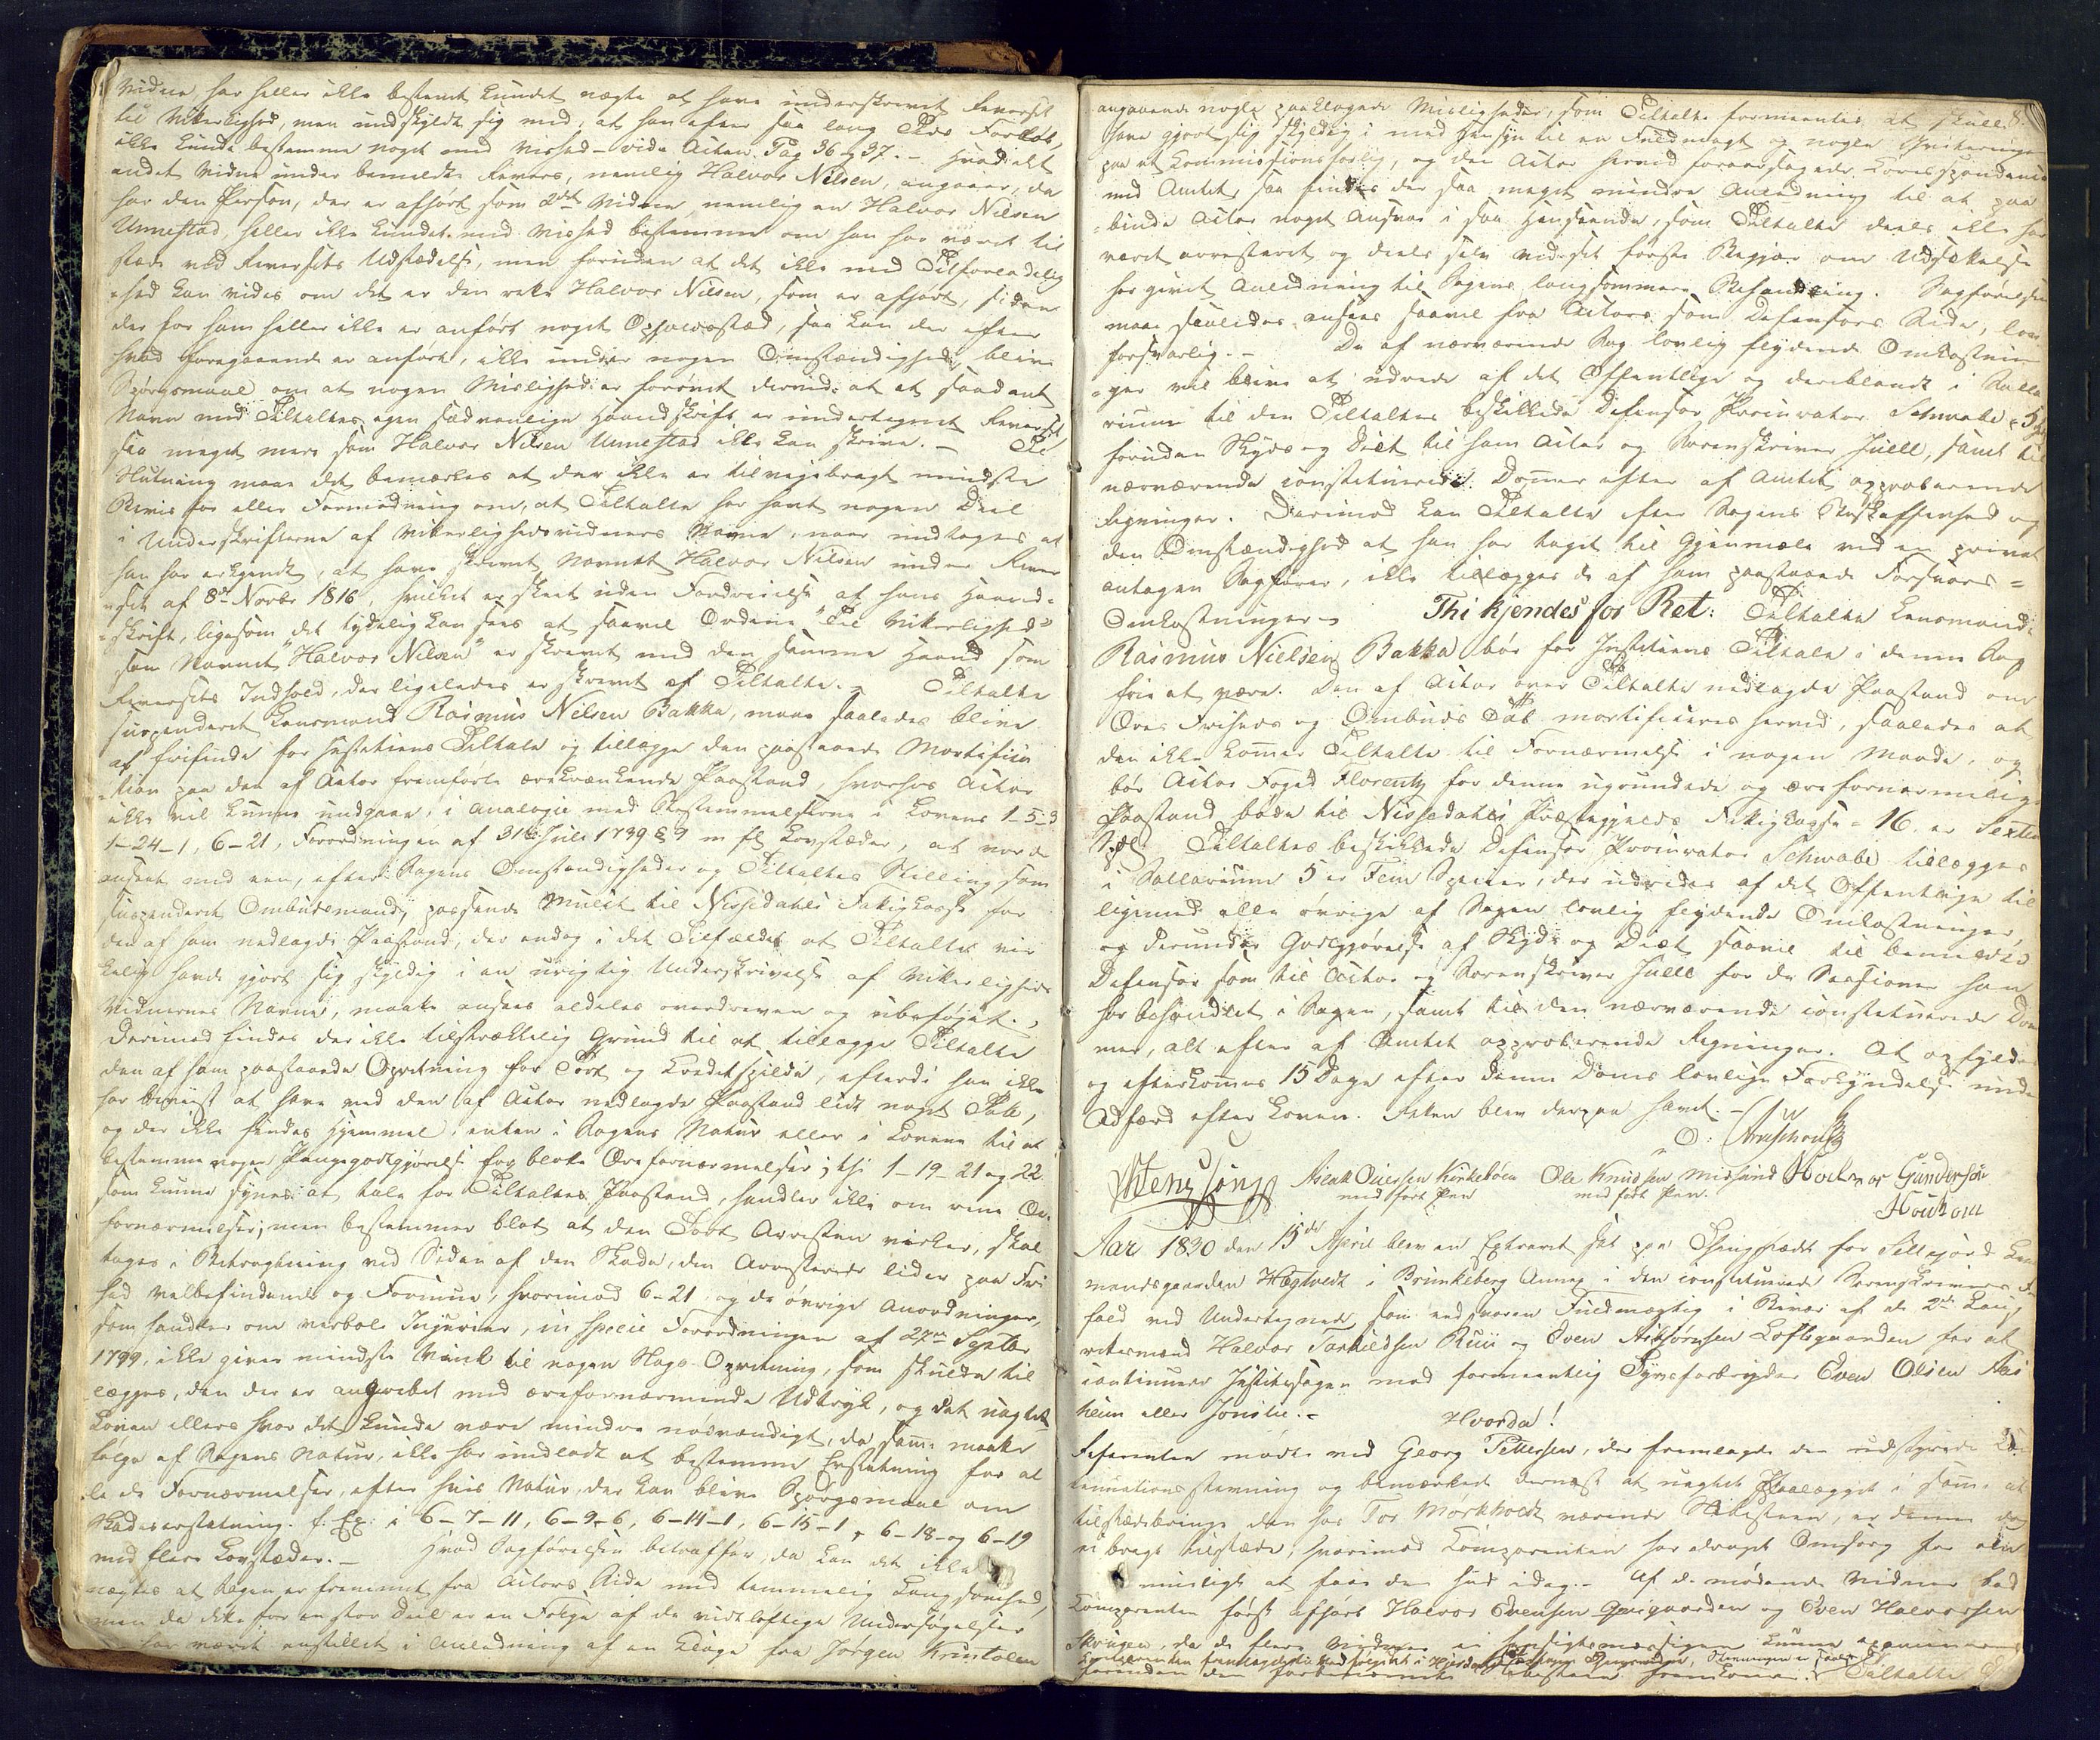 Vidne, har heller ikke bestemt kundet nægte at have underskrevet Reverset
til Vitterlighed, men undskyldt sig med, at han efter saa lang Tids Forløb,
ikke kunde bestemme noget med Vished - vide Acten Pag 36 og 37. - Hvad det
andet Vidne under bemeldte Revers, nemlig Halvor Nilsen, angaaer, da
har den Person, der er afhørt som 2det Vidne, nemlig en Halvor Nilsen
Unnestad, heller ikke kundet med Vished bestemme om han har været til
stede ved Reversets Udstædelse, men foruden at det ikke med Tilforladelig
hed kan vides om det er den rette Halvor Nilsen, som er afhørt, siden
der for ham heller ikke er anført noget Opholdssted, saa kan der efter
hvad foregaaende er anført, ikke under nogen Omstændighed blive
Spørgsmaal om at nogen Mislighed er forøvet derved at et saadant
Navn med Tiltaltes egen sædvanlige Haandskrift er undertegnet Reverset
saa meget mere som Halvor Nilsen Unnestad ikke kan skrive. - Til
Slutning maae det bemærkes at der ikke er tilvejebragt mindste
Beviis for eller Formodning om, at Tiltalte har havt nogen Deel
i Underskrifterne af Vitterlighedsvidners Navne, naar undtages at
han har erkjendt, at have skrevet Navnet Halvor Nilsen under Rever
set af 8de Novbr 1816, hvilket er skeet uden Fordreielse af hans Haand-
skrift, ligesom det tydelig kan sees at saavel Ordene "Til Vitterlighed"
som Navnet "Halvor Nilsen" er skrevet med den samme Haand som
Reversets Indhold, der ligeledes er skrevet af Tiltalte. - Tiltalte
suspenderet Lensmand Rasmus Nilsen Bakka, maae saaledes blive
at frifinde for Justitiens Tiltale og tillægge den paastaaede Mortifica
tion paa den af Actor fremførte ærekrænkende Paastand, hvorhos Actor
ikke vil kunne undgaae, i Analogie med Bestemmelserne i Lovens 1-5-3
1-24-1, 6-21, Forordningen af 31te Juli 1739 § 9 m fl Lovsteder, at vorde
anseet med een, efter Sagens Omstændigheder og Tiltaltes Stilling som
suspenderet Ombudsmand, passende Mulct til Nissedahls Fattigkasse for
den af ham nedlagde Paastand, der endog i det Tilfælde at Tiltalte vir
kelig havde gjort sig skyldig i en urigtig Underskrivelse af Vitterligheds
Vidnernes Navne, maatte ansees aldeles overdreven og ubeføjet. -
Derimod findes der ikke tilstrækkelig Grund til at tillægge Tiltalte
den af ham paastaaede Opretning for Tort og Creditspilde, efterdi han ikke
har beviist at have ved den af Actor nedlagde Paastand lidt noget Tab,
og der ikke findes Hjemmel, enten i Sagens Natur eller i Lovene til at
bestemme nogen Pengegodtgjørelse for blotte Ærefornærmelser; thi 1-19-21 og 22
som kunne synes at tale for Tiltaltes Paastand, handler ikke om rene Ære
fornærmelser; men bestemmer blot at den Tort Arresten virker, skal
tages i Betragtning ved Siden af den Skade, den Arresterede lider paa Fri
hed Velbefindende og Formue, hvorimod 6-21 og de øvrige Anordninger,
som handler om verbale Injurier, in specie Forordningen af 27de Septbr
1799, ikke giver mindste Vink til nogen Slags Opretning, som skulde til
lægges, den der er angrebet med ærefornærmende Udtryk, og det uagtet
Loven ellers hvor det kunde være mindre nødvændigt, da samme maatte
følge af Sagens Natur, ikke har undladt at bestemme Erstatning for al
le de Fornærmelser, efter hvis Natur, der kan blive Spørgsmaal om
Skadeserstatning. f. Ex: i 6-7-11, 6-9-6, 6-14-1, 6-15-1, 6-18- og 6-19
med flere Lovsteder. - Hvad Sagførelsen betræffer, da kan det ikke
nægtes at Sagen er fremmet fra Actors Side med temmelig Langsomhed,
men da dette for en stor Deel er en Følge af de vidtløftige Undersøgelser
har været anstillet i Anledning af en Klage fra Jørgen Kristolen
angaaende nogle paaklagede Misligheder, som Tiltalte formeentes at skulle
have gjort sig skyldig i med Hensyn til en Fuldmagt og nogle Qvitteringer
paa et Commissionsforlig, og den Actor herved foraarsagede Correspondence
med Amtet, saa findes der saa meget mindre Anledning til at paa
binde Actor noget Ansvar i saa Henseende, som Tiltalte deels ikke har
været arresteret og deels selv ved sit første Begjær om Udsættelse
har givet Anledning til Sagens langsommere Behandling. Sagførelsen
maae saaledes ansees saavel fra Actors som Defensors Side, lov
forsvarlig. - De af nærværende Sag lovlig flydende Omkostnin
ger vil blive at udrede af det Offentlige og deriblandt i Salla
rium til den Tiltaltes beskikkede Defensor Procurator Schwabe 5 Spd
foruden Skyds og Diæt til ham Actor og Sorenskriver Juell, samt til
nærværende constituerede Dommer efter af Amtet approberende
Regninger. Derimod kan Tiltalte efter Sagens Beskaffenhed og
den Omstændighed at han har taget til Gjenmæle ved en privat
antagen Sagfører, ikke tillægges de af ham paastaaede Forsvars-
Omkostninger. Thi kjendes for Ret: Tiltalte Lensmand
Rasmus Nielsen Bakka bør for Justitiens Tiltale i denne Sag
frie at være. Den af Actor over Tiltalte nedlagde Paastand om
Æres Friheds og Ombuds Tab mortificeres herved, saaledes at
den ikke kommer Tiltalte til Fornærmelse i nogen Maade, og
bør Actor Foged Florentz for denne ugrundede og ærefornærmelige
Paastand bøde til Nissedahls Præstegjelds Fattigkasse 16 er Sexten
Spd. Tiltaltes beskikkede Defensor Procurator Schwabe tillægges
i Sallarium 5 er Fem Species, der udredes af det Offentlige til
ligemed alle øvrige af Sagen lovlig flydende Omkostninger,
og derunder Godtgjørelse af Skyds og Diæt saavel til bemeldte
Defensor som til Actor og Sorenskriver Juell for de Sessioner han
har behandlet i Sagen, samt til den nærværende constituerede Dom
mer, alt efter af Amtet approberende Regninger. At opfyldes
og efterkommes 15 Dage efter denne Doms lovlige Forkyndelse under
Adfærd efter Loven. Retten blev derpaa hævet. -
med ført Pen Ole Knudsen Midsund med ført Pen. Gundersen
Aar 1830 den 15de April blev en Extraret sat paa Thingstedet for Sillejord Lens
mandsgaarden Hægtvedt i Brunkeberg Annex i den constituerede Sorenskrivers For
fald ved Undertegnede som edsvoren Fuldmægtig i Bivær af de 2de Laug
rettesmænd Halvor Tarkildsen Ruii og Even Asbjørnsen Loftsgaarden for at
continuere Justitssagen mod formeentlig Tyvsforbryder Even Olsen Aas
heim eller Jonslie. -
Hvorda!
Referenten mødte ved Georg Pettersen, der fremlagde den udstædede Con
tinuationsstævning og bemærkede dernæst at uagtet Paalægget i samme at
tilstedebringe den hos Tor Mørkholt værende, er denne dog
ei bragt tilstede, hvorimod Comparenten har draget Omsorg for om
muligt at faae den hid idag. - Af de mødende Vidner bad
Comparenten først afhørt Halvor Evensen og Even Halvorsen
da de flere Vidner ei hensigtsmæssigen kunne examineres